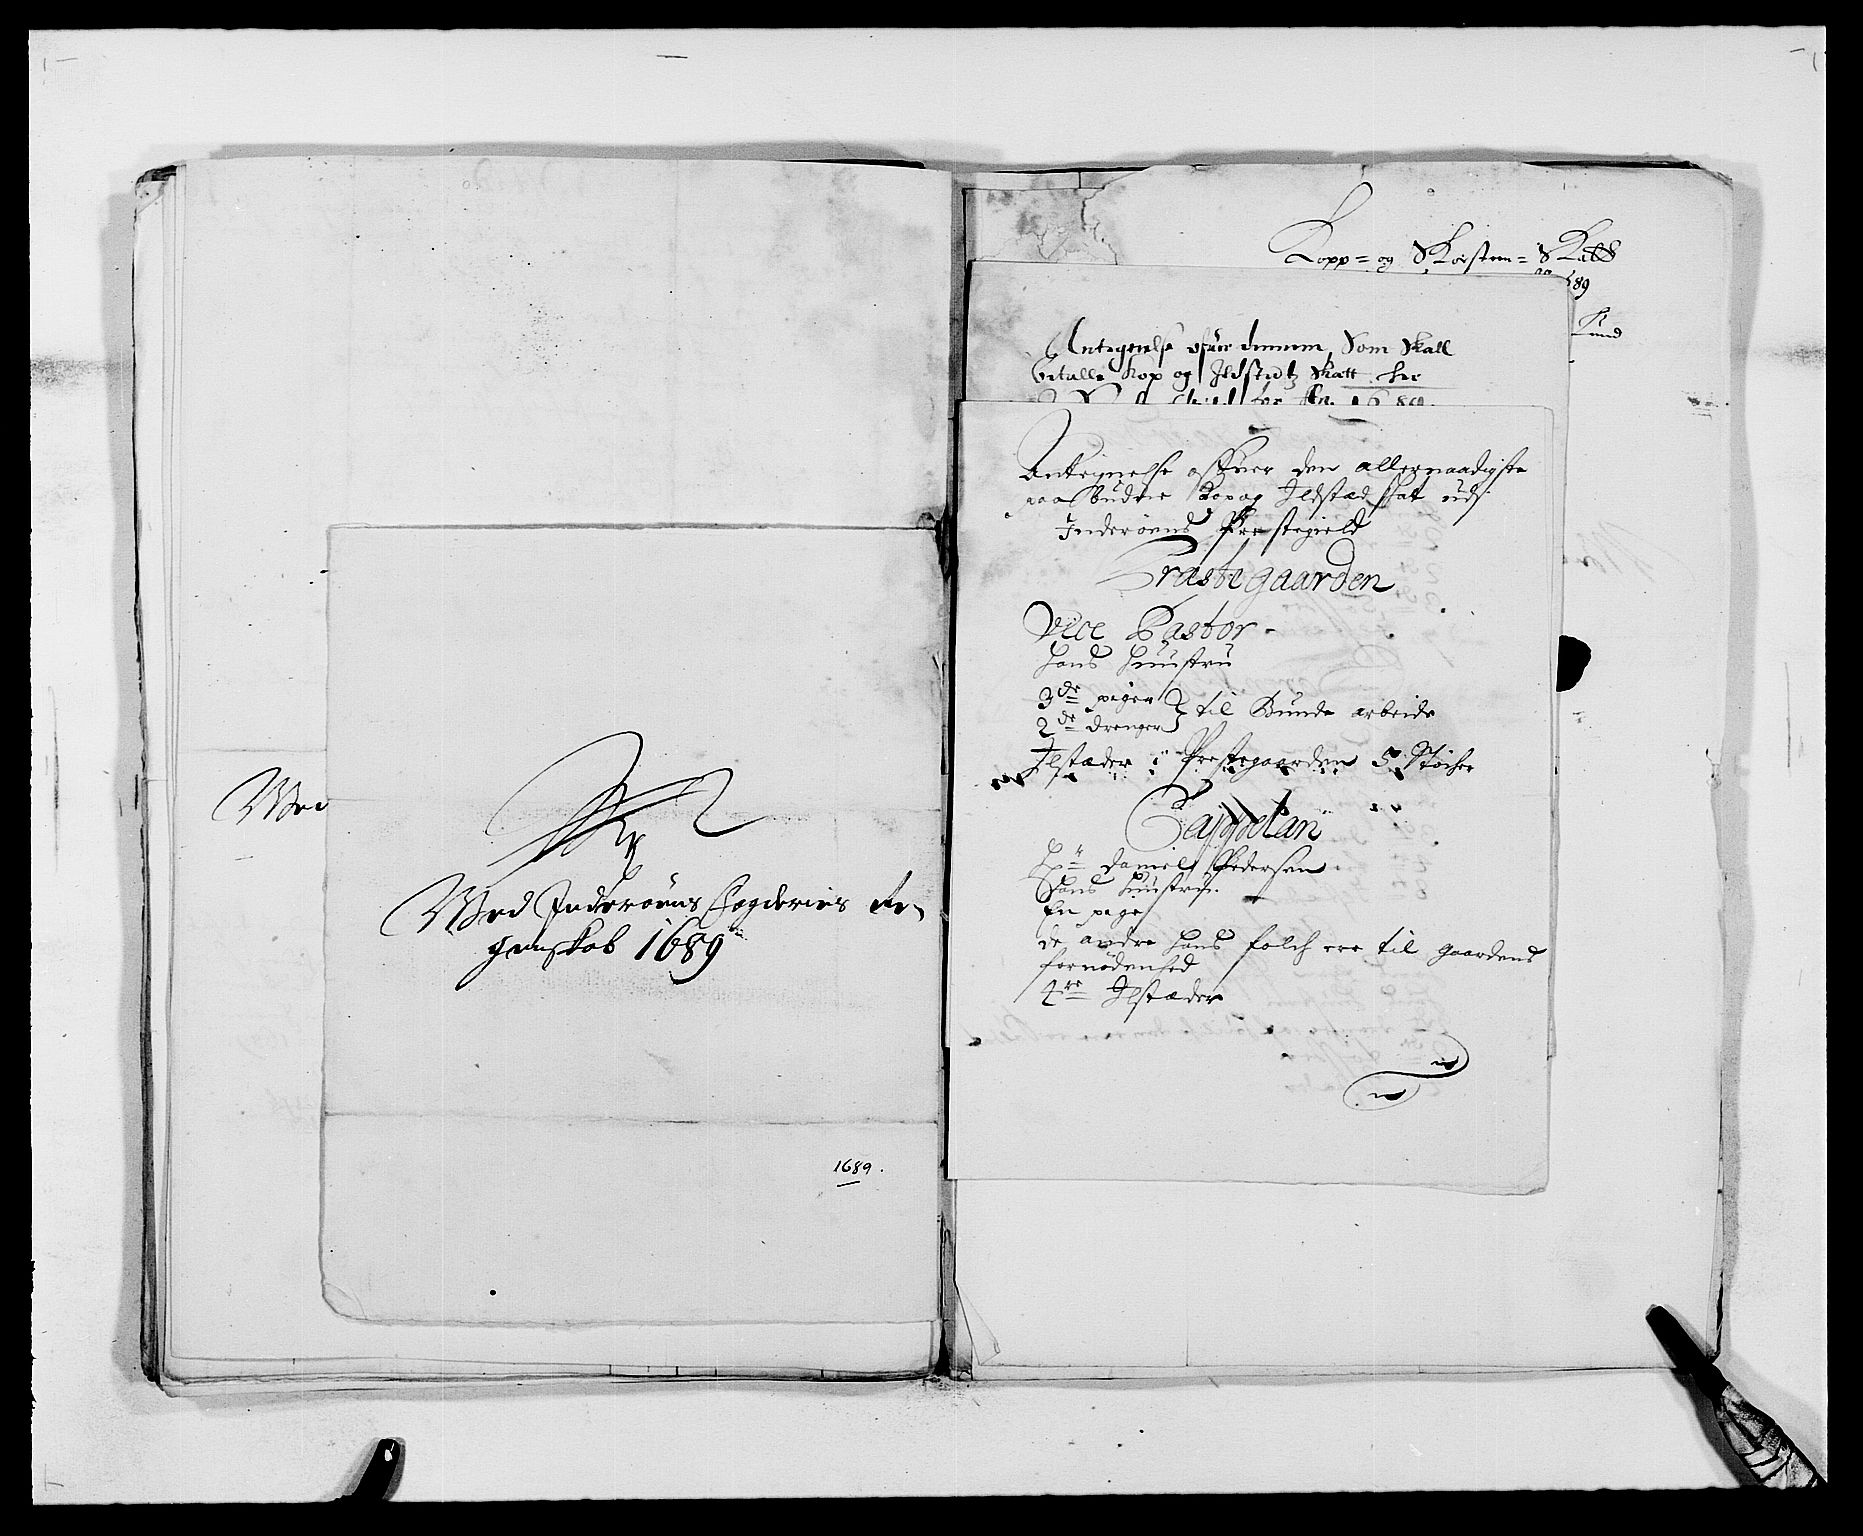 Med
Med Inderøens Fogderies Re-
genskob 1689
1689.
Kopp- og Skorsten- Skatt
89
Antegnelse ofuer dennem, Som Skall
betalle Kop og Ildstedtz Skatt her
for An. 1689.
Anteignelse offuer den allernaadigste
paabudne Kopog Ildstæd skat udj
Inderøens Prestegield
Præstegaarden
Vice Pastor
hans Huustru
3de piger
2de drenger } til Bunde arbeide
Ilstæder i Prestegaarden 5 Støcher
Cappelan
Hr Daniel Pedersen
Hans Huustru.
En pige
de andre hans folch ere til gaardens
fornødenhed
4re Ilstæder